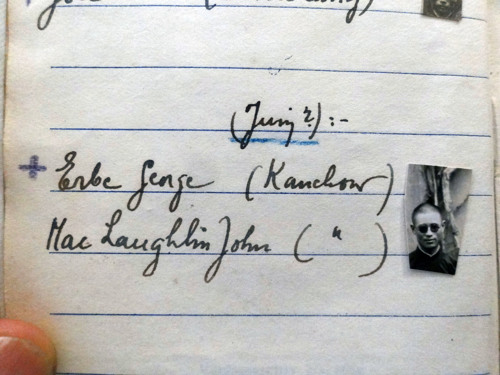 (Juni ?) :-
Erbe George (Kanchow)
Mac Laughlin John ( " )